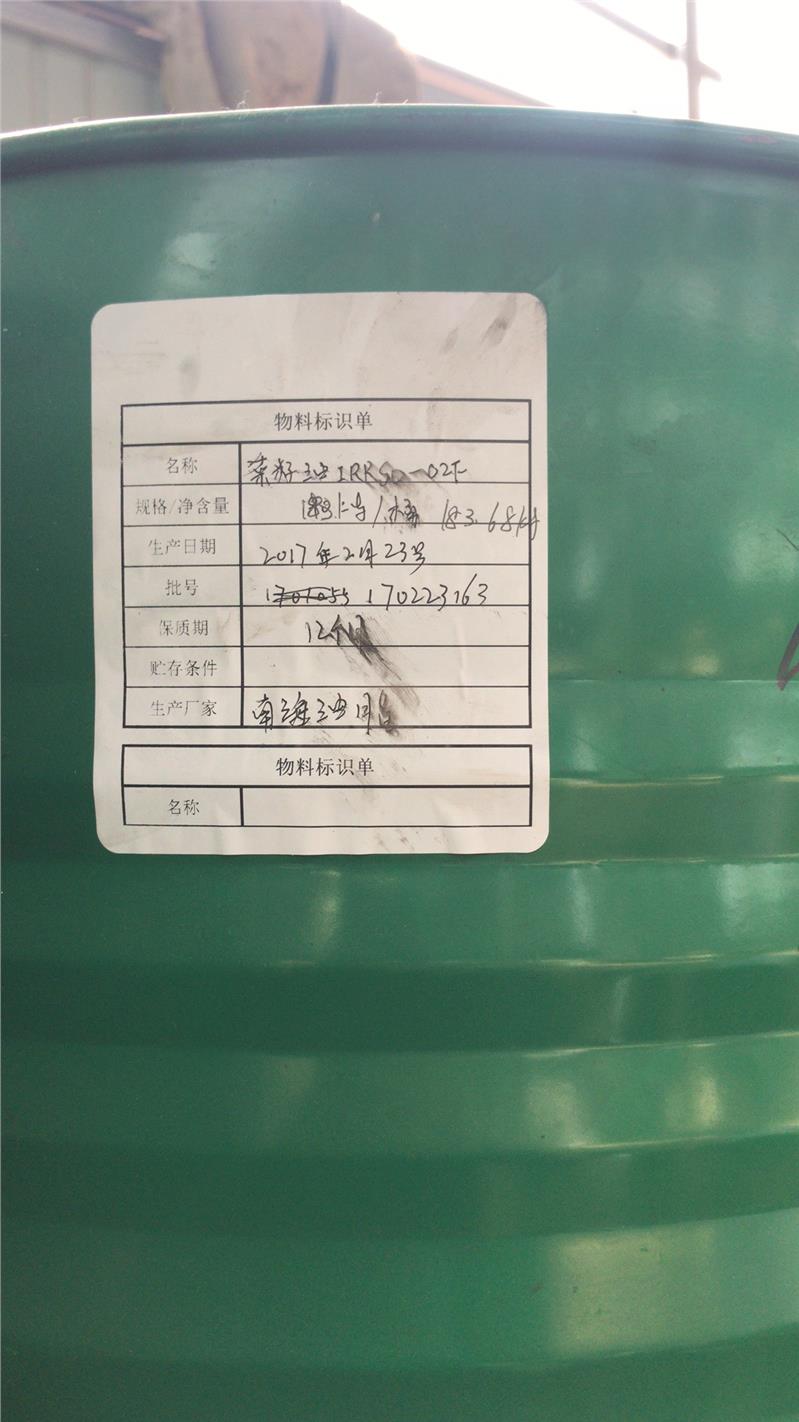 物料标识单
名称 菜籽油IRRSO-02F
规格/净含量 /桶 183.68kg
生产日期 2017年2月23号
批号 1701055 170223163
保质期 12个月
贮存条件
生产厂家 南海油脂
物料标识单
名称